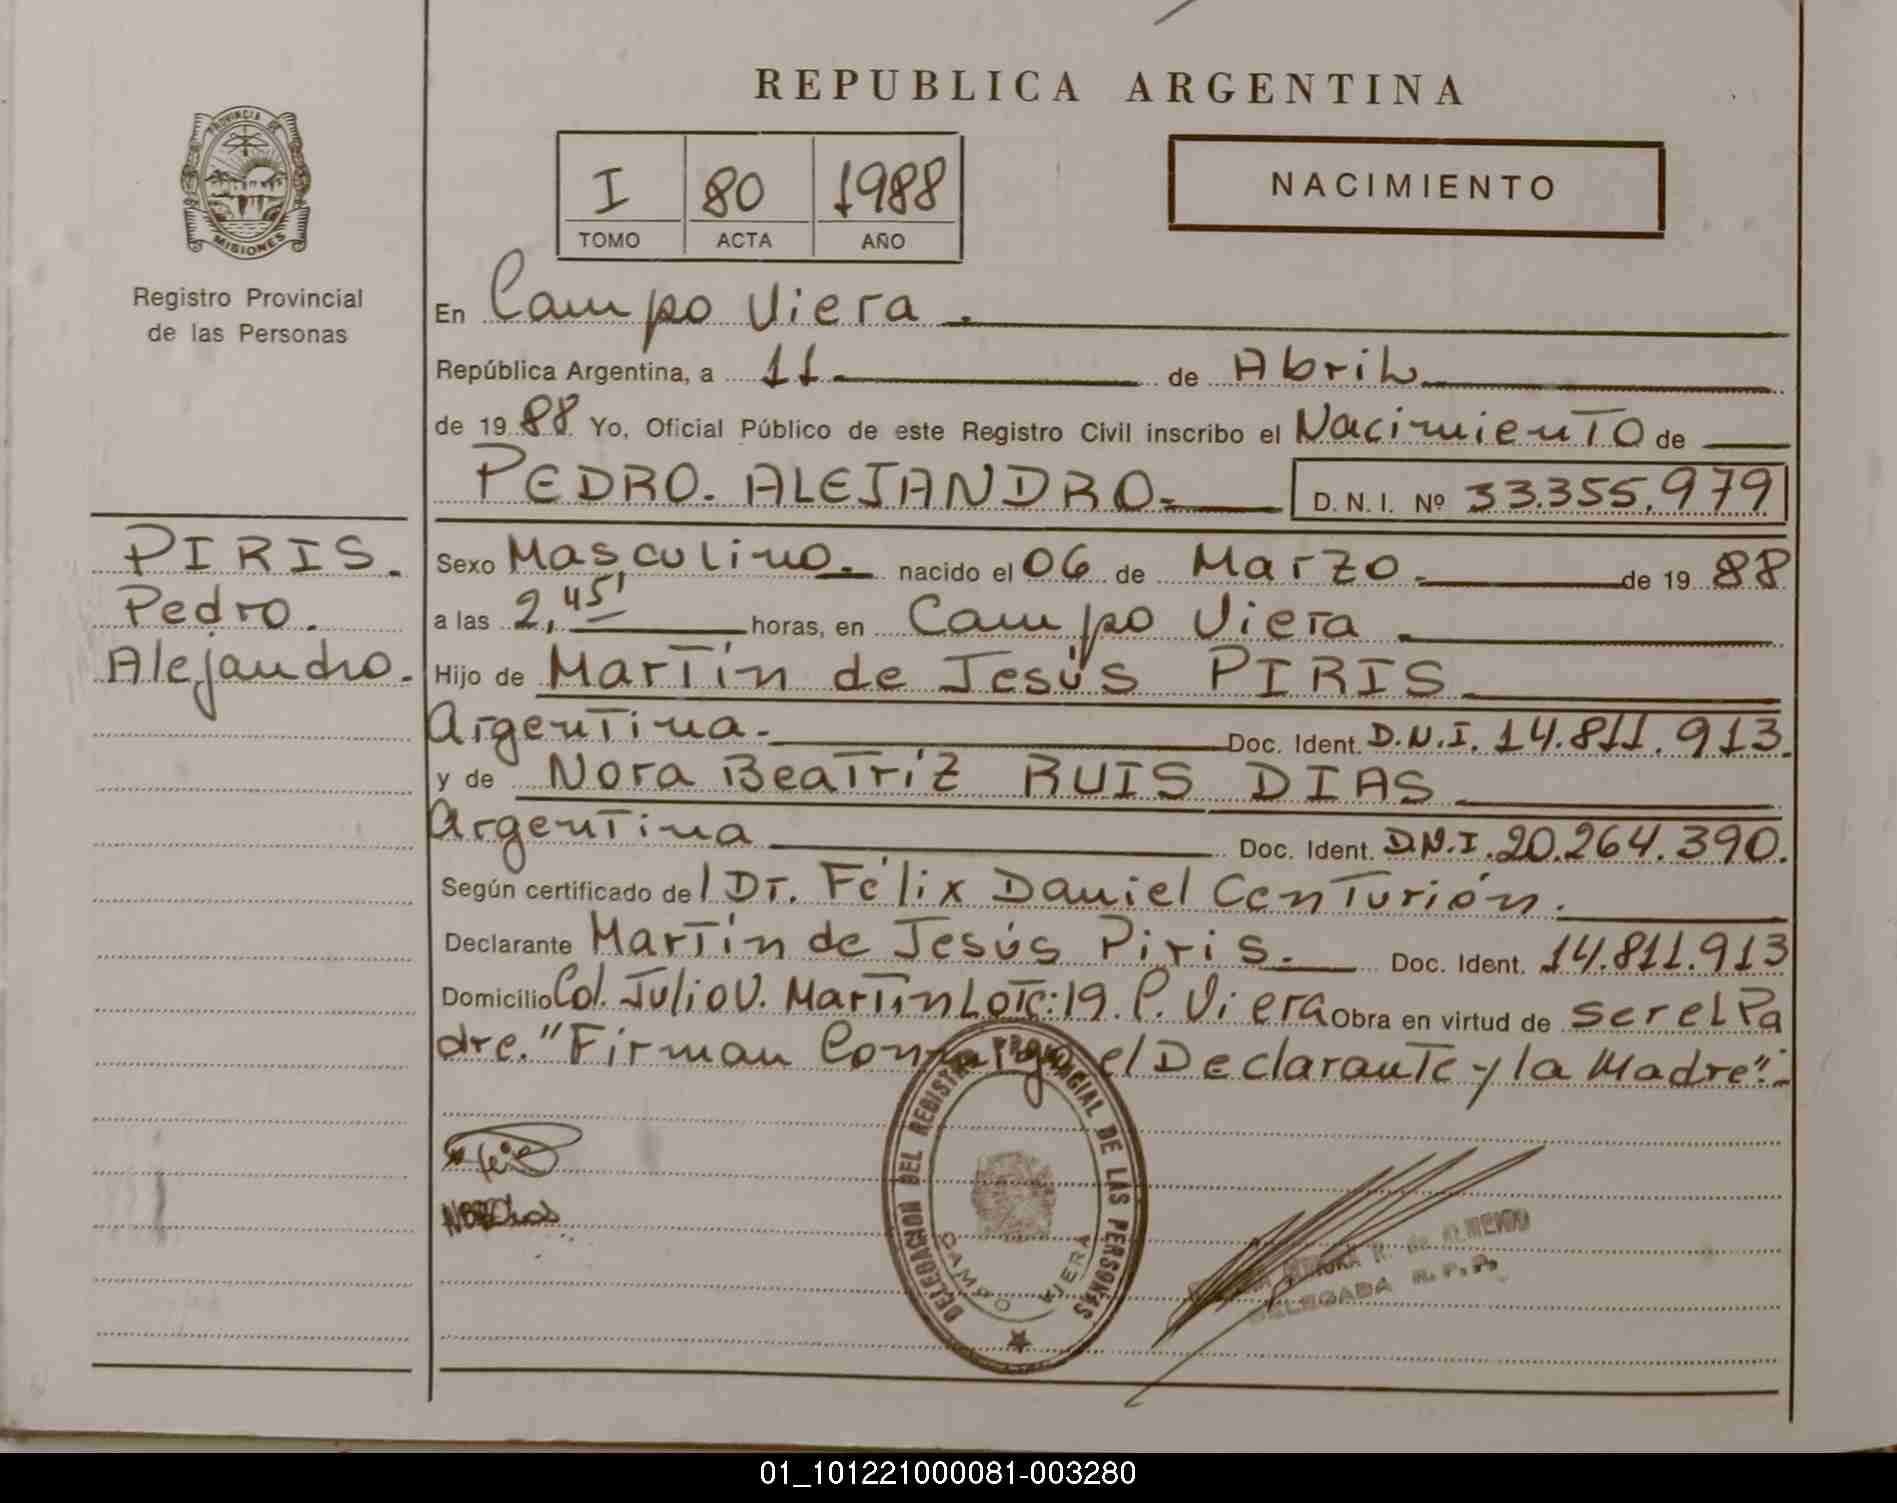 REPUBLICA ARGENTINA
PROVINCIA DE
MISIONES
Registro Provincial
de las Personas
I 80 1988
TOMO ACTA AÑO
NACIMIENTO
En Campo Viera.
República Argentina, a 11 de Abril
de 1988 Yo, Oficial Público de este Registro Civil inscribo el Nacimiento de
PEDRO. ALEJANDRO.- D. N. I. Nº 33.355.979
PIRIS.
Pedro.
Alejandro.
Sexo Masculino. nacido el 06 de Marzo. de 1988
a las 2,45' horas, en Campo Viera.
Hijo de Martín de Jesús PIRIS
Argentina. Doc. Ident. D.N.I. 14.811.913.
y de Nora Beatríz RUIS DIAS
Argentina Doc. Ident. D.N.I. 20.264.390.
Según certificado del Dr. Félix Daniel Centurión.
Declarante Martín de Jesús Piris. Doc. Ident. 14.811.913
Domicilio Col. Julio U. Martín Lote: 19. C. Viera Obra en virtud de ser el Pa
dre. "Firman Conmigo el Declarante y la Madre".-
DELEGACION DEL REGISTRO PROVINCIAL DE LAS PERSONAS
CAMPO VIERA
DELEGADA R.P.P.
01_101221000081-003280